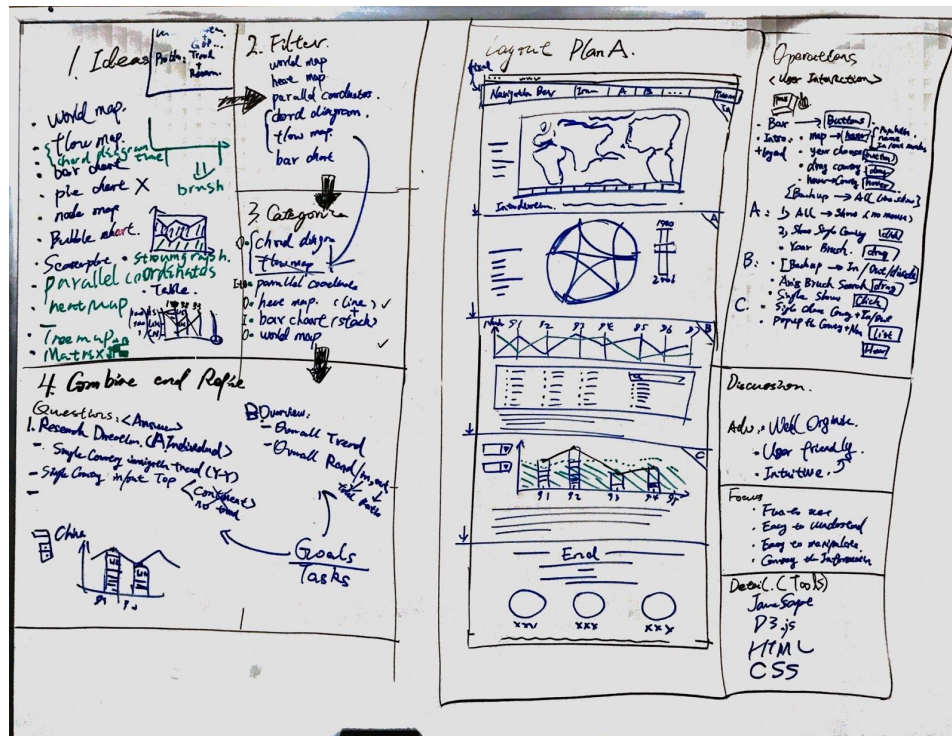 1. Ideas
world map.
flow map.
chord diagram
time
bar chart
pie chart X
node map
Bubble chart.
parallel coordinates
heatmap
Table.
Treemap
brush
2. Filter.
world map
heat map.
parallel coordinates.
chord diagram.
flow map.
bar chart
3. Categorize
chord diagram
flow map
parallel coordinates
heat map. (Line) ✓
bar chart (stack)
world map ✓
4. Combine and Refine
Questions: <Answer>
1. Research Direction. (A Individual)
- Single Country immigrate trend (Y-Y)
- Single Country in/out Top
-
China
91 92
B Overview:
- Overall Trend
- Overall Rank
Goals
Tasks
Layout Plan A.
Navigation Bar A B ...
Introduction.
A
1980
B
91 92 93 94 95 96
C
91 92 93 94 95
End
xxx xxx xxx
Operations
<User Interaction>
Bar → Buttons.
map → hover
year choose button
drag country drag
hover country hover
[Backup → ALL (no show)]
A: 1) ALL → Show (no mouse)
2) Show Single Country click
Year Brush. drag
B: [Backup → In/Out/divide]
Axis Brush Search drag
Single Show Click
C
List
Discussion.
Adv. Well Organise.
User friendly.
Intuitive.
Focus
Fun to use
Easy to understand
Easy to manipulate.
Convey the Information
Detail. (Tools)
D3.js
HTML
CSS